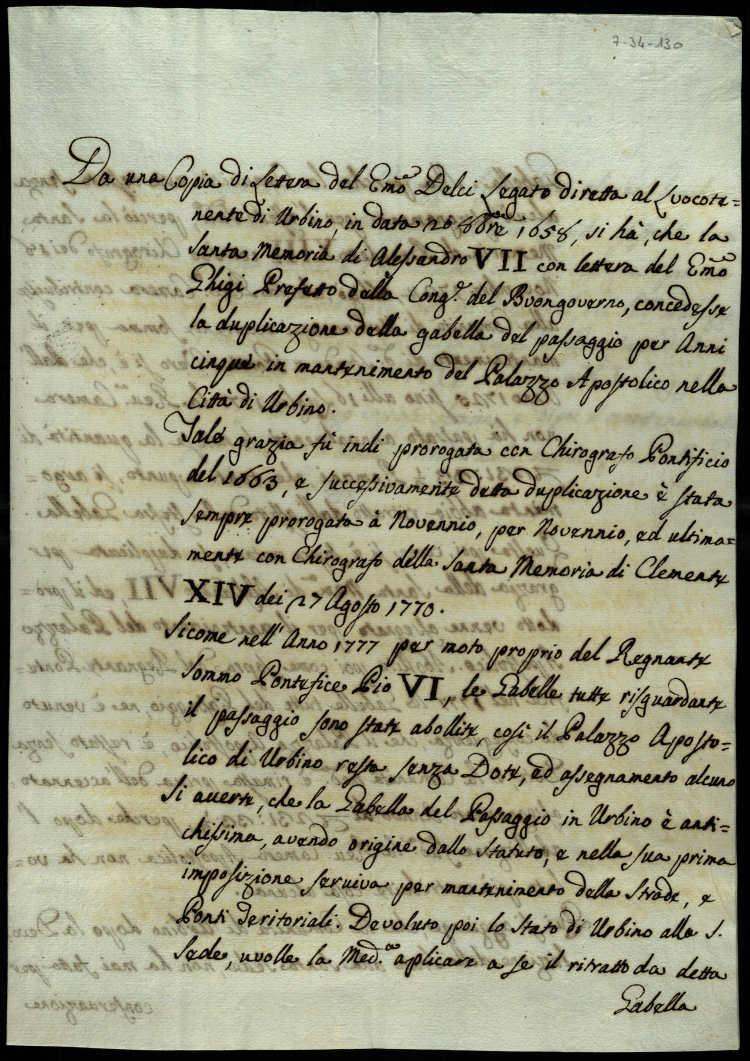 7-34-130
Da una Copia di Lettera del Emo Delci Legato diretta al Luocote=
nente di Urbino, in data 26 8bre 1658, si hà, che la
Santa Memoria di Alessandro VII con lettera del Emo
Ghigi Prefetto della Cong.e del Buongoverno, concedesse
la duplicazione della gabella del passaggio per Anni
cinque in mantenimento del Palazzo Apostolico nella
Città di Urbino.
Tale grazia fù indi prorogata con Chirografo Pontificio
del 1663, e successivamente detta duplicazione è stata
sempre prorogata à Novennio, per Novennio, ed ultima=
mente con Chirografo della Santa Memoria di Clemente
XIV dei 27 Agosto 1770.
Sicome nell'Anno 1777 per moto proprio del Regnante
Sommo Pontefice Pio VI, le Gabelle tutte risguardante
il passaggio sono state abollite, così il Palazzo Aposto=
lico di Urbino resta senza Dote, ed assegnamento alcuno
Si averte, che la Gabella del Passaggio in Urbino è anti=
chissima, avendo origine dallo Statuto, e nella sua prima
imposizione serviva per mantenimento della Strade, e
Ponti Teritoriali. Devoluto poi lo Stato di Urbino alla S.
Sede, uvolle la Med.ma aplicare a se il ritratto da detta
Gabella